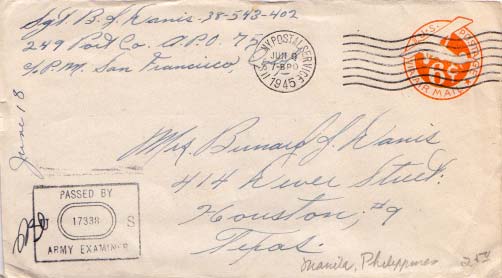 Sgt. B. J. Davis - 38-543-402
249 Port Co. A.P.O. 75
P.M. San Francisco,
U.S. ARMY POSTAL SERVICE
JUN 9
1945
VIA AIR MAIL
June 18
Mrs. Bernard J. Davis
414 Dever Street.
Houston, #9
Texas.
PASSED BY
17338 S
ARMY EXAMINER
Manila, Philippines